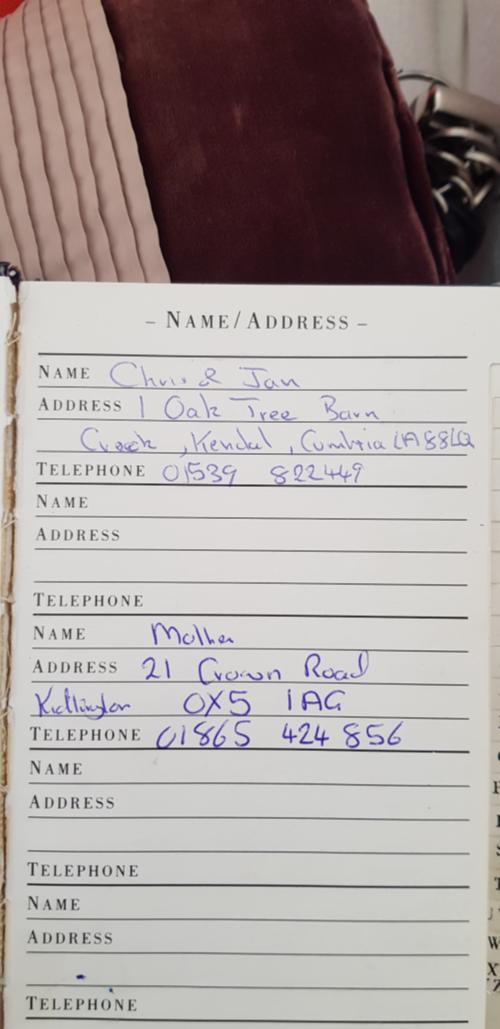 – NAME/ADDRESS –
NAME Chris & Jan
ADDRESS 1 Oak Tree Barn
Crook, Kendal, Cumbria LA8 8LQ
TELEPHONE 01539 822449
NAME
ADDRESS
TELEPHONE
NAME Mother
ADDRESS 21 Crown Road
Kidlington OX5 1AG
TELEPHONE 01865 424 856
NAME
ADDRESS
TELEPHONE
NAME
ADDRESS
TELEPHONE